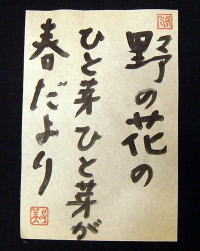 野の花の
ひと芽ひと芽が
春だより